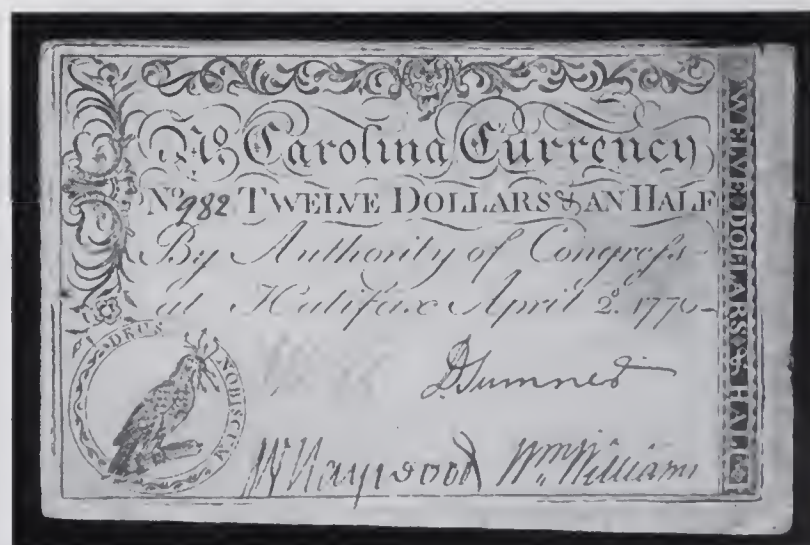 No Carolina Currency
No 982 TWELVE DOLLARS & AN HALF
By Authority of Congress
at Halifax April 2d. 1776
DEUS NOBISCUM
J Sumner
W Haywood Wm Williams
TWELVE DOLLARS & HALF